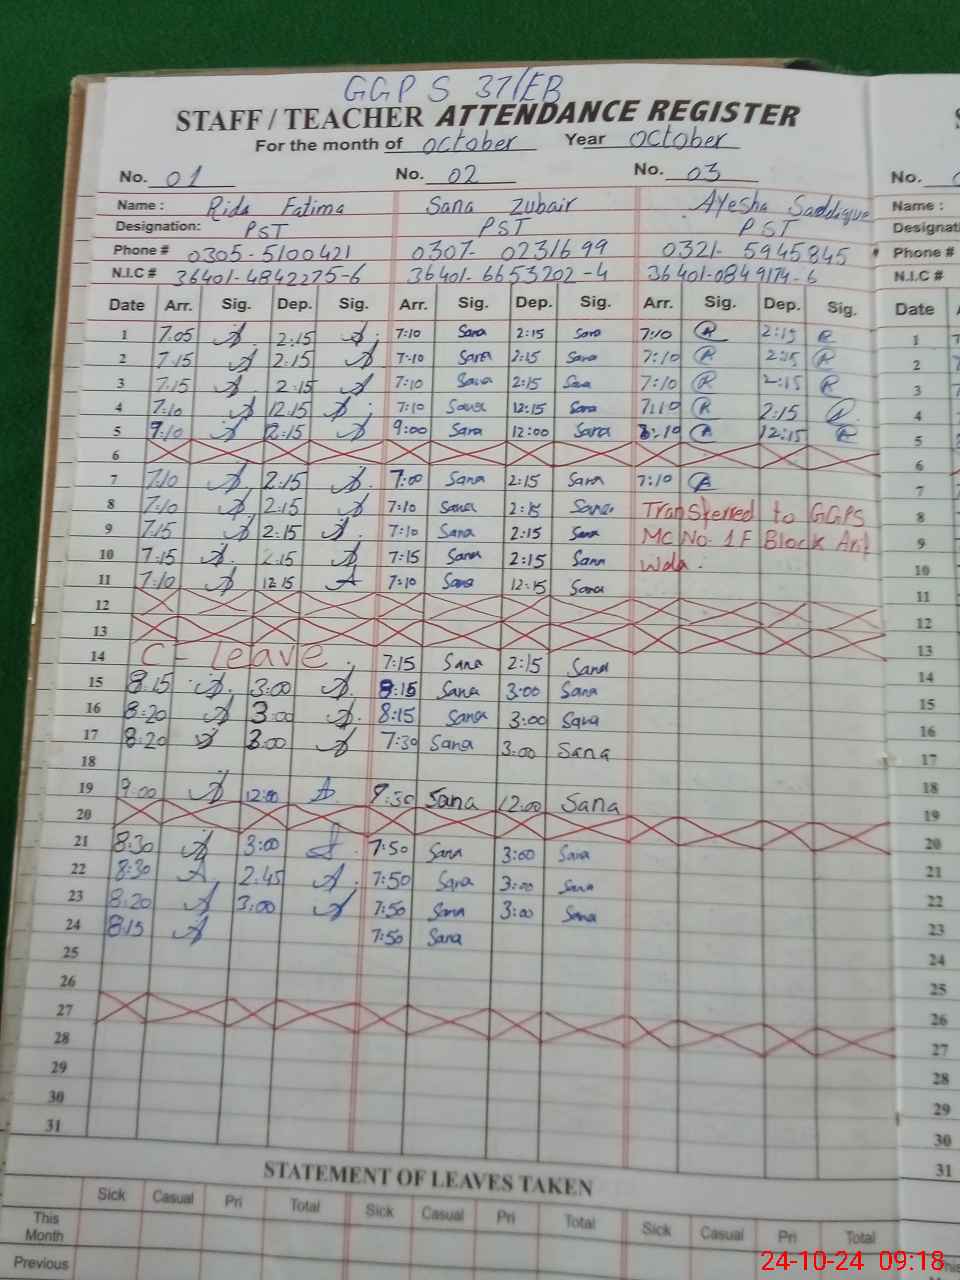 GGPS 37/EB
STAFF / TEACHER ATTENDANCE REGISTER
For the month of october Year october
No. 01 No. 02 No. 03 No.
Name : Rida Fatima Sana Zubair Ayesha Saddique Name :
Designation: PST PST PST Designati
Phone # 0305-5100421 0307-0231699 0321-5945845 Phone #
N.I.C # 36401-4842275-6 36401-6653202-4 36401-0849174-6 N.I.C #
Date Arr. Sig. Dep. Sig. Arr. Sig. Dep. Sig. Arr. Sig. Dep. Sig. Date
1 7.05 2:15 7:10 Sana 2:15 Sana 7:10 R 2:15 R 1
2 7.15 2:15 7:10 Sana 2:15 Sana 7:10 R 2:15 R 2
3 7.15 2:15 7:10 Sana 2:15 Sana 7:10 R 2:15 R 3
4 7:10 12:15 7:10 Sana 12:15 Sana 7:10 R 2:15 R 4
5 2:15 9:00 Sana 12:00 Sana 12:15 R 5
6 6
7 7:10 2:15 7:00 Sana 2:15 Sana 7:10 R 7
8 7:10 2:15 7:10 Sana 2:15 Sana Transferred to GGPS 8
9 7:15 2:15 7:10 Sana 2:15 Sana MC No. 1 F Block Arif 9
10 7:15 2:15 7:15 Sana 2:15 Sana wala. 10
11 7:10 12:15 7:10 Sana 12:15 Sana 11
12 12
13 13
14 C-leave. 7:15 Sana 2:15 Sana 14
15 8:15 3:00 8:15 Sana 3:00 Sana 15
16 8:20 3:00 8:15 Sana 3:00 Sana 16
17 8:20 3:00 7:30 Sana 3:00 Sana 17
18 18
19 9:00 12:00 9:30 Sana 12:00 Sana 19
20 20
21 8:30 3:00 7:50 Sana 3:00 Sana 21
22 8:30 2:45 7:50 Sana 3:00 Sana 22
23 8:20 3:00 7:50 Sana 3:00 Sana 23
24 8:15 7:50 Sana 24
25 25
26 26
27 27
28 28
29 29
30 30
31 31
STATEMENT OF LEAVES TAKEN
Sick Casual Pri Total Sick Casual Pri Total Sick Casual Pri Total
This
Month
Previous
24-10-24 09:18